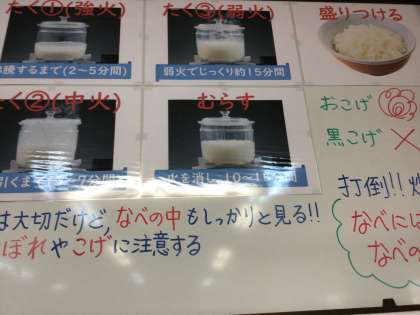 たく①(強火)
たく③(弱火)
盛りつける
騰するまで(2～5分間)
弱火でじっくり約15分間
たく②(中火)
むらす
おこげ
黒こげ ×
は大切だけど,なべの中もしっかりと見る!!
ぼれやこげに注意する
打倒!!
なべには
なべの